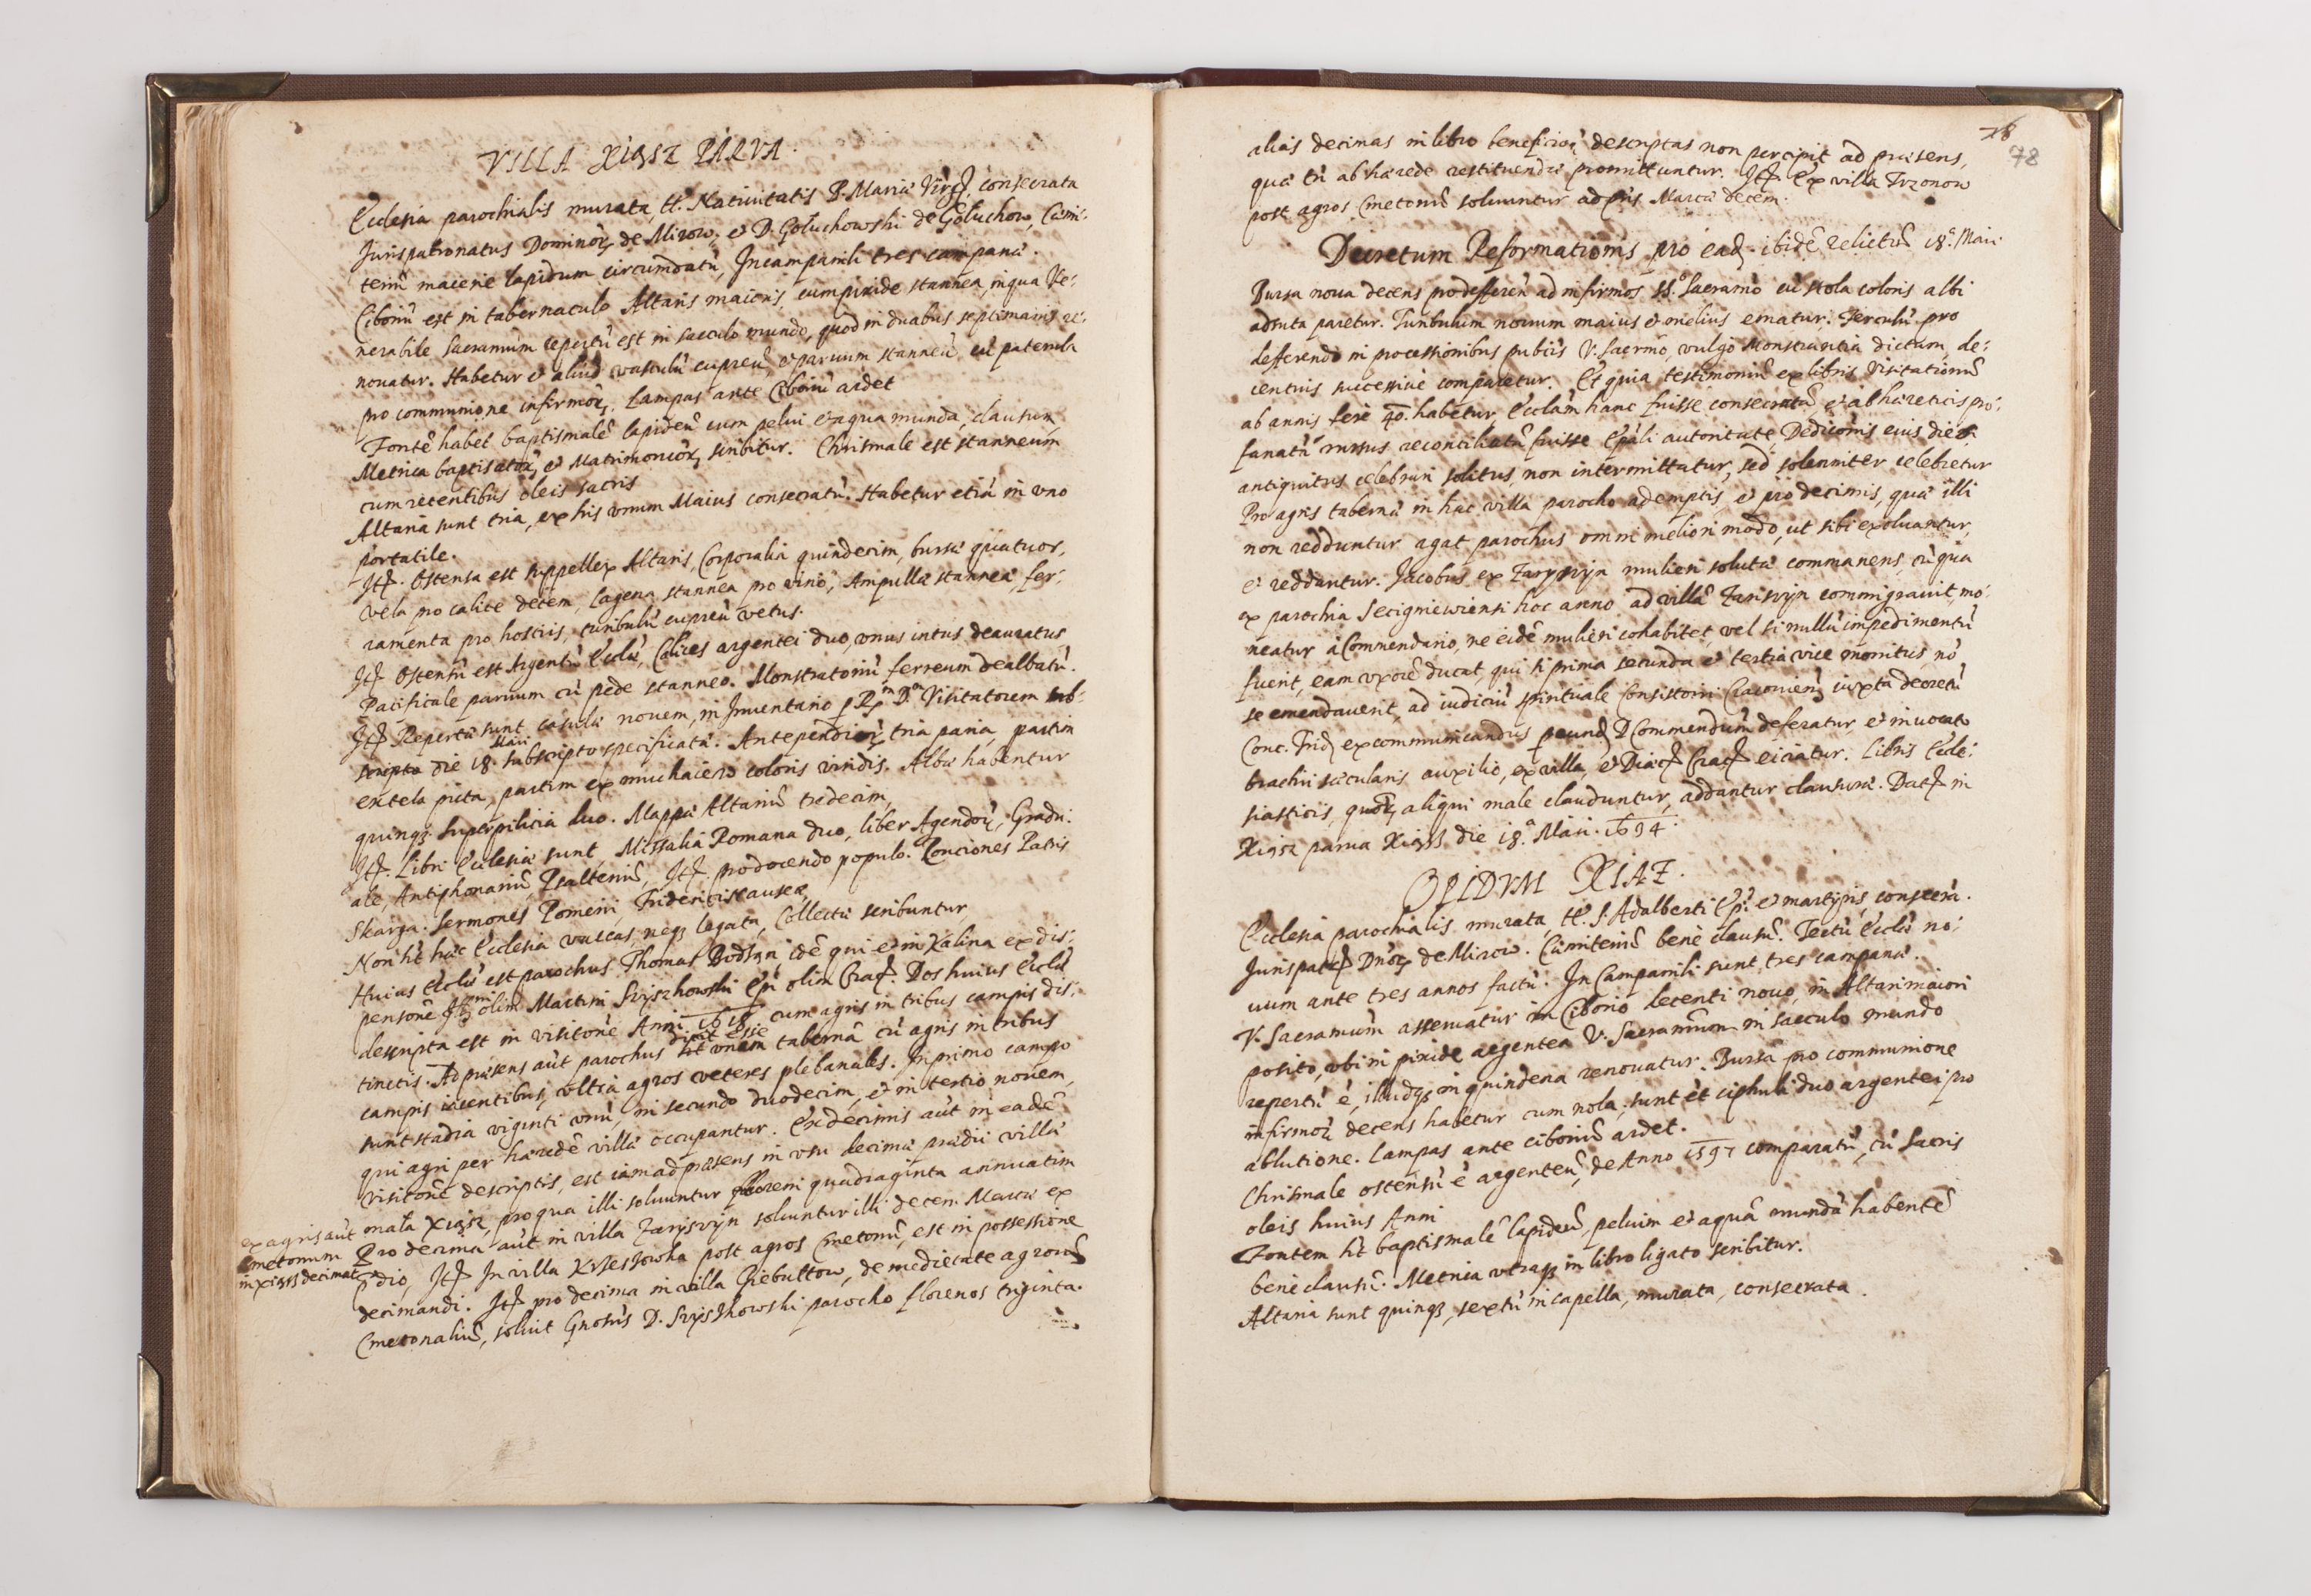 VILLA XIĄSZ PARVA.
Ecclesia parochialis murata, tt. Natiuitatis B. Mariæ Virg. consecrata
Jurispatronatus Dominor. de Mirow, et D. Gołuchowski de Gołuchow, Cæmi-
teriũ maceriæ lapidum circumdatũ, In campanili tres campanæ.
Ciboriũ est in tabernaculo Altaris maioris, cum pixide stannea, in qua Ve-
nerabile Sacramũm repertũ est in sacculo mundo, quod in duabus septimanis re-
nouatur. Habetur et aliud vasculũ cupreũ, et paruum stanneũ, cũ patenula
pro communione infirmor. Lampas ante Ciboriũ ardet
Fontẽ habet baptismalẽ lapideũ cum pelui et aqua munda, clausum,
Metrica baptisator. et Matrimonior. scribitur. Chrismale est stanneum
cum recentibus oleis sacris
Altaria sunt tria, ex his vnum Maius consecratũ. Habetur etiã in vno
portatile.
It. Ostensa est suppellex Altaris, Corporalia quindecim, bursæ quatuor,
vela pro calice decem, Lagena stannea pro vino, Ampullæ stanneæ, fer-
ramenta pro hostiis, turibulũ cupreũ vetus.
It. Ostensũ est Argentũ Ecclæ, Calices argentei duo, vnus intus deauratus
Pacificale paruum cũ pede stanneo. Monstratoriũ ferreum dealbatũ.
It. Repertæ sunt casulæ nouem, in Inuentario p R. D. Visitatorem sub-
scripto die 18. Maii subscripto specificatæ. Antependior. tria paria, partim
ex tela picta, partim ex muchaiero coloris viridis. Albæ habentur
quinq. Superpilicia duo. Mappæ Altariũ tredecim,
It. Libri Ecclesiæ sunt, Missalia Romana duo, liber Agendor., Gradu-
ale, Antiphonariũ, Psalteriũ, It. pro docendo populo. Conciones Patris
Skarga. Sermones Pomerii, Friderici
Non ht hæc Ecclesia vaccas, neq. legata, Collectæ scribuntur,
Huius Ecclæ est parochus Thomas idẽ qui et in Kalina ex dis-
pensõne olim Martini Szyszkowski Epi olim Crac. Dos huius Ecclæ
descripta est in visitõne Anni 1618 cum agris in tribus campis dis-
tinctis. Ad præsens aũt parochus dicit esse ht vnam tabernã cũ agris in tribus
campis iacentibus, vltra agros veteres plebanales. In primo campo
sunt stadia viginti vnũ, in secundo duodecim, et in tertio nouem,
qui agri per hæredẽ villæ occupantur. Ex decimis aũt in eadẽ
visitõne descriptis, est iam ad præsens in vsu decima prædii villæ
Xiąsz, pro qua illi soluuntur floreni quadraginta annuatim
ex agris aũt
cmetonum
in Xiąsz decimat
Pro decima aũt in villa Zaryszyn soluuntur illi decem Marcæ ex
pdio, It. In villa post agros Cmetonũ, est in possessione
decimandi. It. pro decima in villa Giebułtow, de medietate agrorũ
Cmetonaliũ, soluit Gnosus D. Szyszkowski parocho florenos triginta.
78
78
alias decimas in libro beneficior. descriptas non percipit ad præsens,
quæ tñ ab hærede restituendæ promittuntur. It. Ex villa Trzonow
post agros Cmetonũ soluuntur ad pñs Marcæ decem.
Decretum Reformationis pro ead. ibidẽ relictũ 18ª Maii.
Bursa noua decens pro defferen. ad infirmos SS. Sacramõ cũ stola coloris albi
adiuta paretur. Turibulum nouum maius et melius ematur. Ferculũ pro
defferendo in processionibus publicis V. Sacrmõ, vulgo Monstrantia dictum, de-
centius successiuè comparetur. Et quia testimoniũ ex libris Visitationũ
ab annis fere 40. habetur Ecclãm hanc fuisse consecratã, et ab hæreticis pro-
fanatã rursus reconciliatã fuisse Epãli autoritate, Dedicõnis eius dies
antiquitus celebrari solitus, non intermittatur, sed solenniter celebretur
Pro agris tabernæ in hac villa parocho ademptis, et pro decimis, quæ illi
non redduntur agat parochus omni meliori modo, ut sibi exoluantur,
et reddantur. Jacobus ex Zaryszyn mulieri solutæ commanens, cũ qua
ex parochia Seciginiewiensi hoc anno ad villã Zariszyn commigrauit, mo-
neatur à Commendario, ne eidẽ mulieri cohabitet, vel si nullũ impedimentũ
fuerit, eam vxorẽ ducat, qui si prima secunda et tertia vice monitus, nõ
se emendauerit, ad iudiciũ spirituale Consistorii Cracovien. iuxta decretũ
Conc. Trid. excommunicandus p D. Commendariũ deferatur, et inuocato
brachii sæcularis auxilio, ex villa, et Diæc. Crac. eiiciatur. Libris Eccle-
siasticis, quor. aliqui male clauduntur, addantur clausuræ. Dat. in
Xiąsz parua die 18ª Maii 1634.
OPIDVM XIĄZ.
Ecclesia parochialis, murata, tt. S. Adalberti Epi et martyris, consecra.
Jurispat. Dnor. de Mirow. Cæmiteriũ benè clausũ. Tectũ Ecclæ no-
uum ante tres annos factũ. In Campanili sunt tres campanæ.
V. Sacramũm asseruatur in Ciborio decenti nouo, in Altari maiori
posito, vbi in pixide argentea V. Sacramũm in sacculo mundo
repertũ ẽ, illudq. in quindena renouatur. Bursa pro communione
infirmor. decens habetur cum nola, sunt et ciphuli duo argentei pro
ablutione. Lampas ante ciboriũ ardet.
Chrismale ostensũ ẽ argenteũ, de Anno 1597 comparatũ, cũ Sacris
oleis huius Anni
Fontem ht baptismalẽ lapideũ, peluim et aquã mundã habentẽ
bene clausũ. Metrica vtraq. in libro ligato scribitur.
Altaria sunt quinq., sextũ in capella, murata, consecrata.